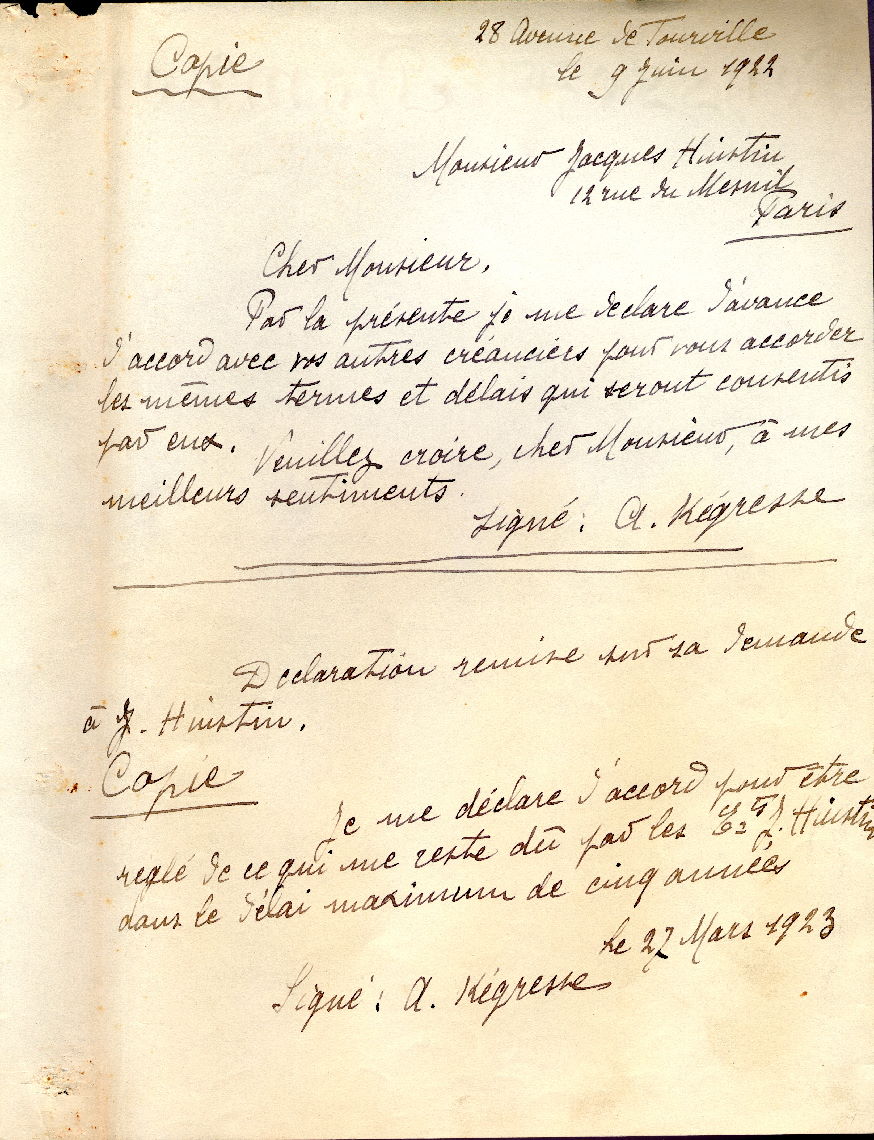 28 Avenue de Tourville
Copie
le 9 Juin 1922
Monsieur Jacques Hinstin
12 rue du Mesnil
Paris
Cher Monsieur,
Par la présente je me declare d'avance
d'accord avec vos autres créanciers pour vous accorder
les mêmes termes et délais qui seront consentis
par eux.
Veuillez croire, cher Monsieur, à mes
meilleurs sentiments.
Signé: A. Kégresse
Declaration remise sur sa demande
à J. Hinstin.
Copie
Je me déclare d'accord pour être
reglé de ce qui me reste dû par les Ets J. Hinstin
dans le délai maximum de cinq années
le 27 Mars 1923
Signé: A. Kégresse